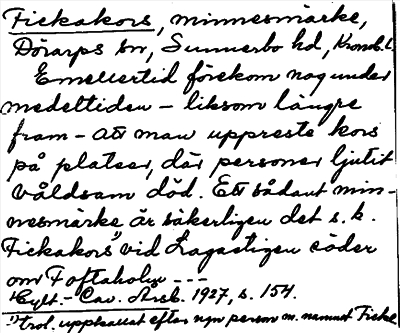 Fickakors, minnesmärke,
Dörarps sn, Sunnerbo hd, Kronob. l.
Emellertid förekom nog under
medeltiden – liksom längre
fram – att man uppreste kors
på platser, där personer ljutit
våldsam död. Ett sådant min-
nesmärke är säkerligen det s. k.
"Fickakors" vid Lagastigen söder
om Toftaholm ---
Hylt.-Cav. Årsb. 1927, s. 154.
trol. uppkallat efter ngn person m. namnet Ficke